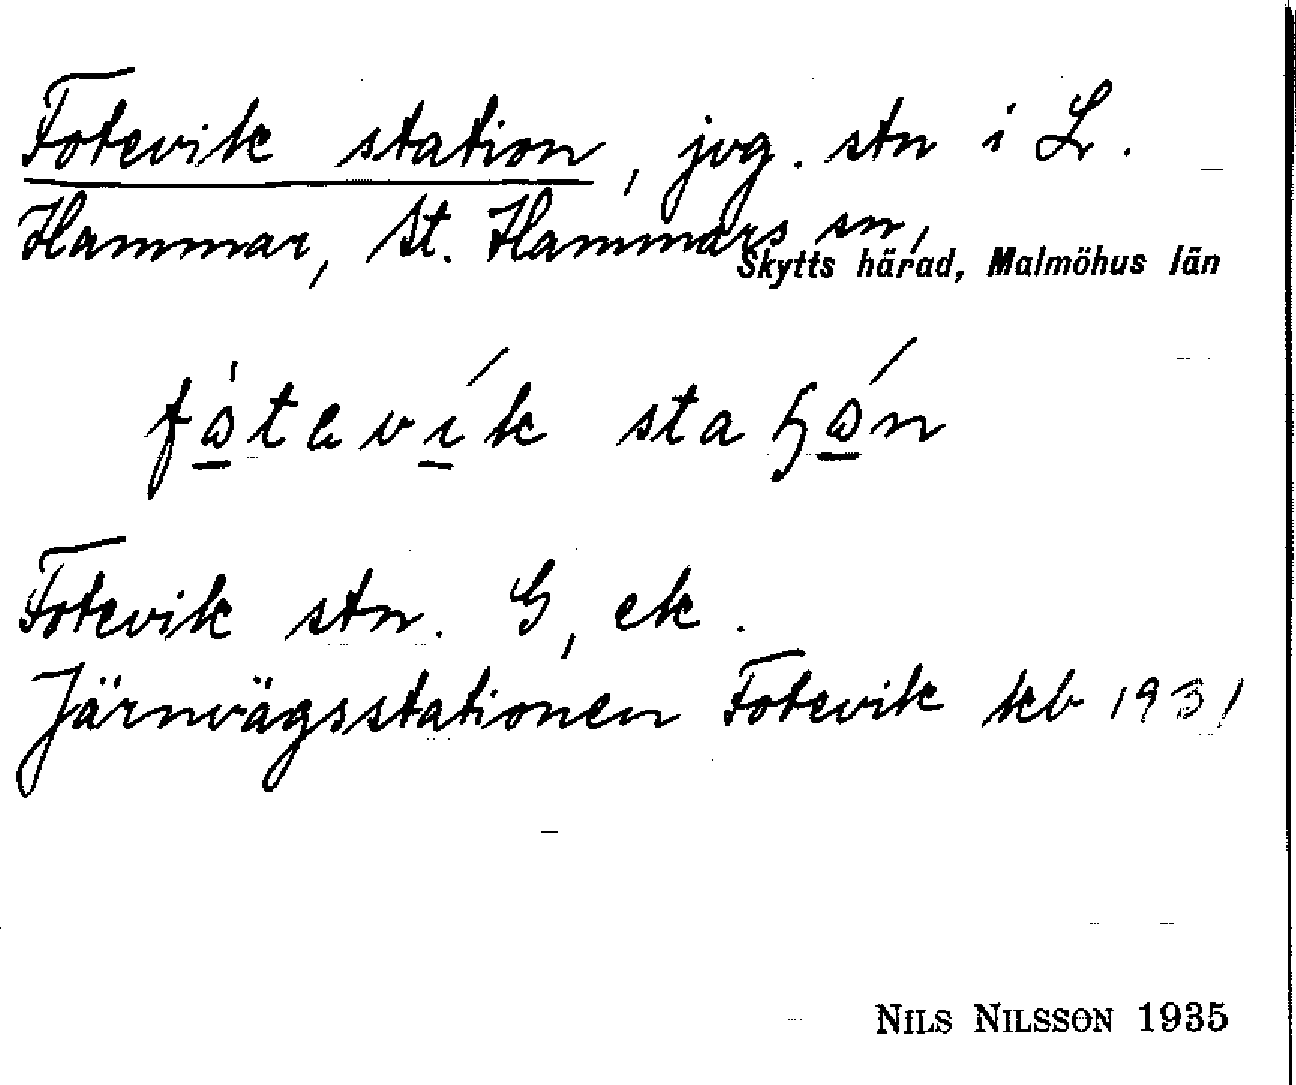 Fotevik station, jvg. stn i L.
Hammar, St. Hammars sn,
Skytts härad, Malmöhus län
Fotevik stn. G, ek.
Järnvägsstationen Fotevik kb 1931
NILS NILSSON 1935